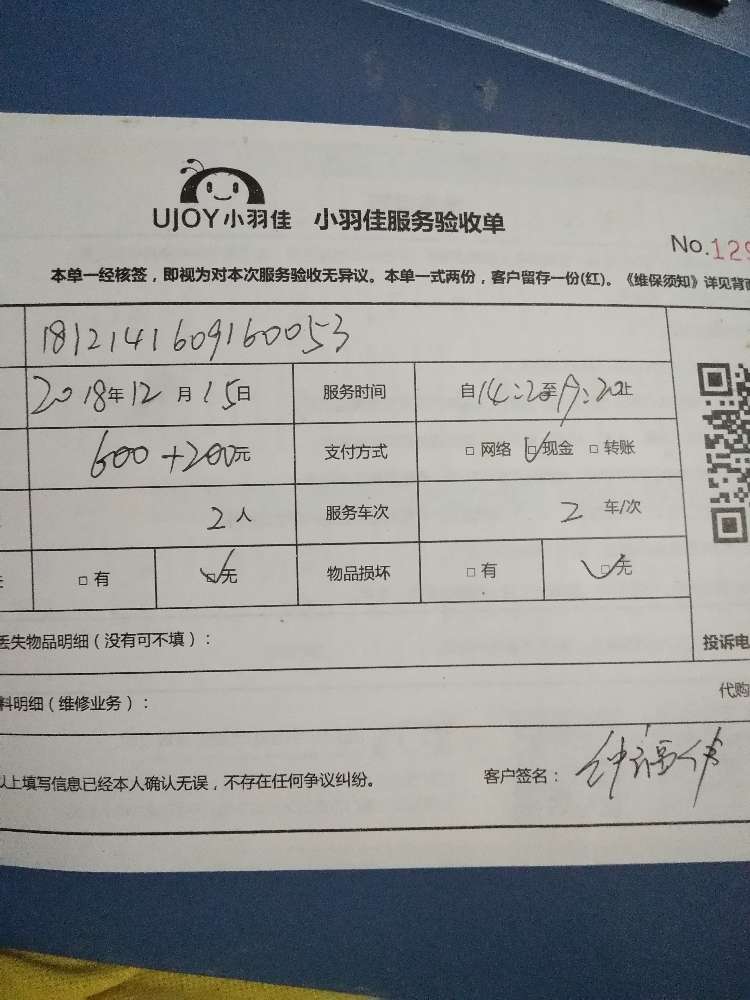 UJOY小羽佳 小羽佳服务验收单
No.129
本单一经核签，即视为对本次服务验收无异议。本单一式两份，客户留存一份(红)。《维保须知》详见背面
1812141609160053
2018年12月15日 服务时间 自14:2至19:20止
600+200元 支付方式 □网络 □现金 □转账
2人 服务车次 2 车/次
□有 □无 物品损坏 □有 □无
丢失物品明细（没有可不填）：
投诉电
料明细（维修业务）：
代购
以上填写信息已经本人确认无误，不存在任何争议纠纷。
客户签名：钟福伟